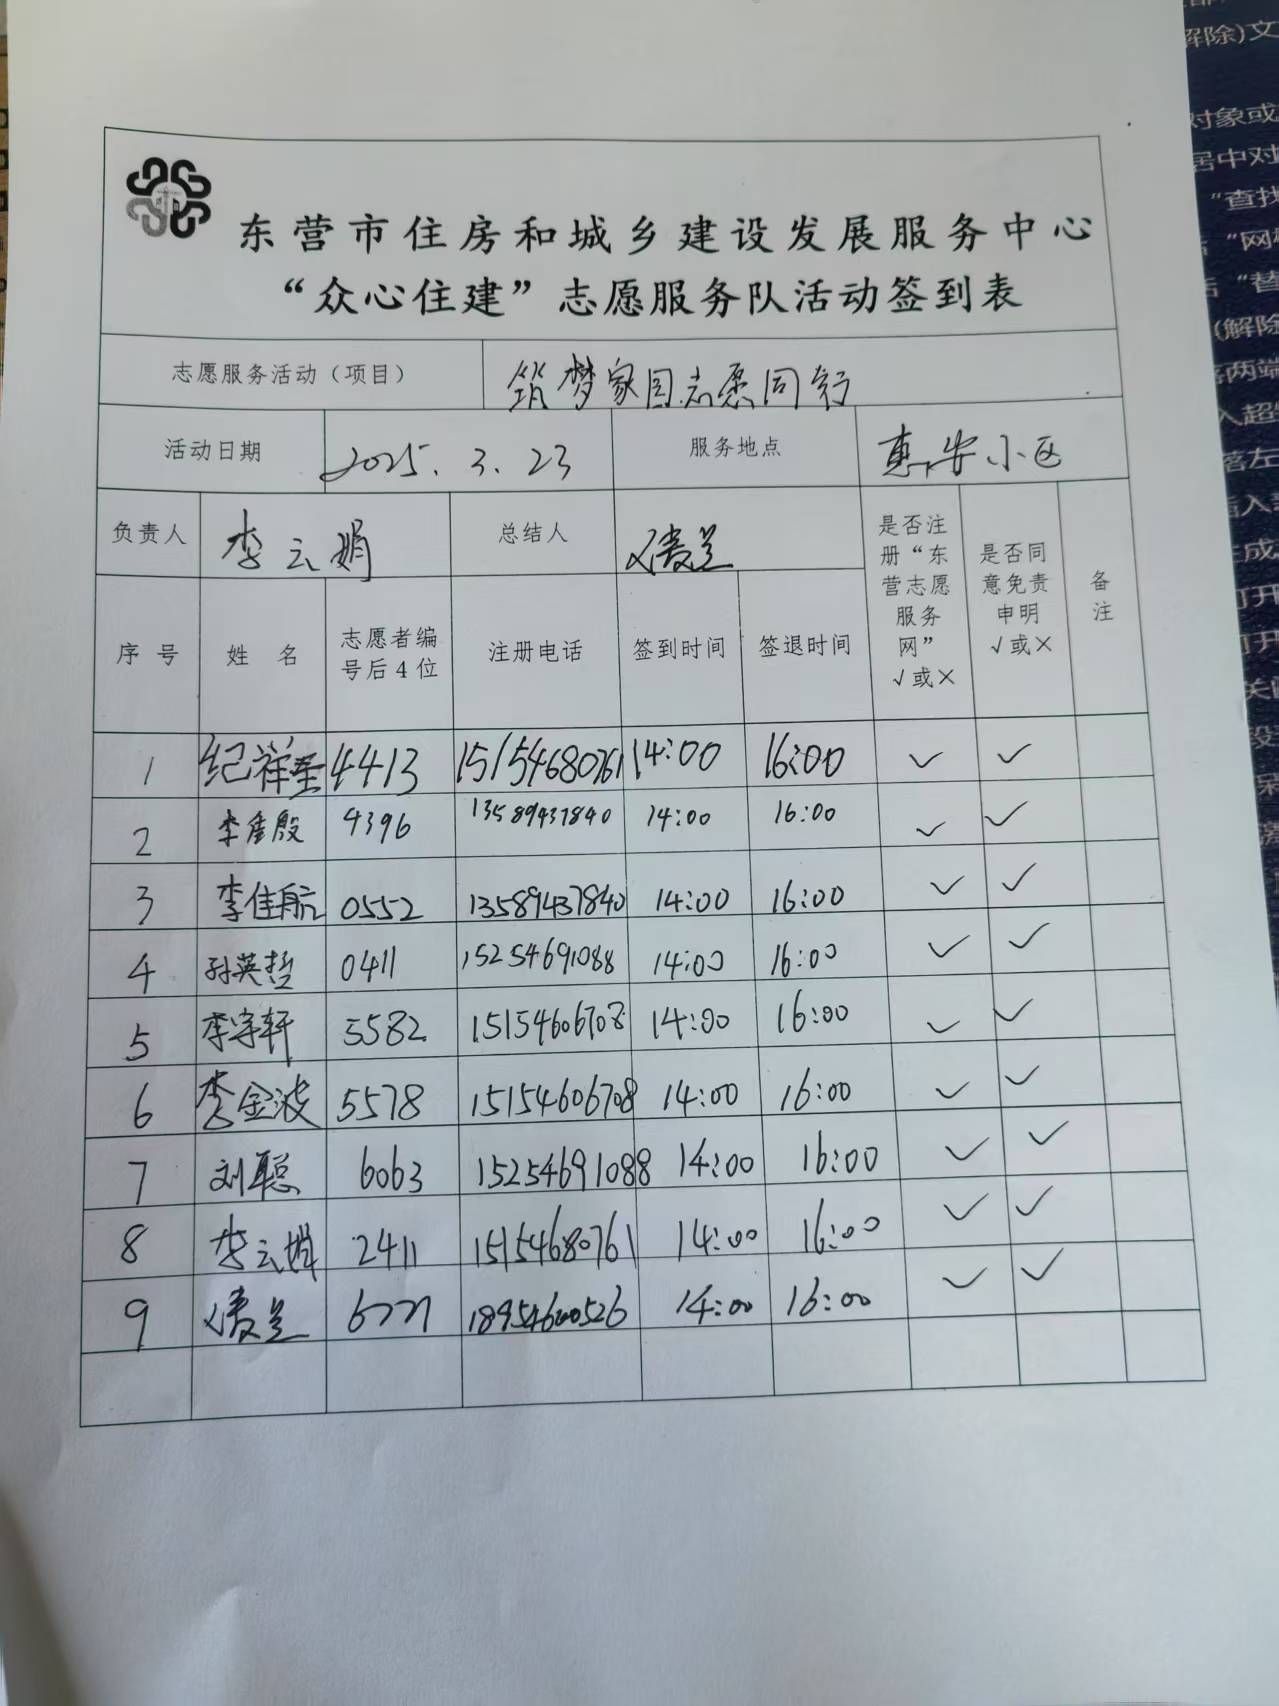 东营市住房和城乡建设发展服务中心
“众心住建”志愿服务队活动签到表
志愿服务活动（项目） 筑梦家园志愿同行
活动日期 2025.3.23 服务地点 惠安小区
负责人 李云娟 总结人 是否注册“东营志愿服务网”√或× 是否同意免责申明√或× 备注
序号 姓名 志愿者编号后4位 注册电话 签到时间 签退时间
1 纪祥奎 4413 15154680761 14:00 16:00 ✓ ✓
2 李佳殷 4396 13589437840 14:00 16:00 ✓ ✓
3 李佳航 0552 13589437840 14:00 16:00 ✓ ✓
4 孙英哲 0411 15254691088 14:00 16:00 ✓ ✓
5 李宇轩 5582 15154606708 14:00 16:00 ✓ ✓
6 李金波 5578 15154606708 14:00 16:00 ✓ ✓
7 刘聪 6063 15254691088 14:00 16:00 ✓ ✓
8 李云娟 2411 15154680761 14:00 16:00 ✓ ✓
9 18954600526 14:00 16:00 ✓ ✓
解除)文
对象或
居中对
“查找
“网
“替
(解除
两端
入超
落左
插入
成
打开
打开
关